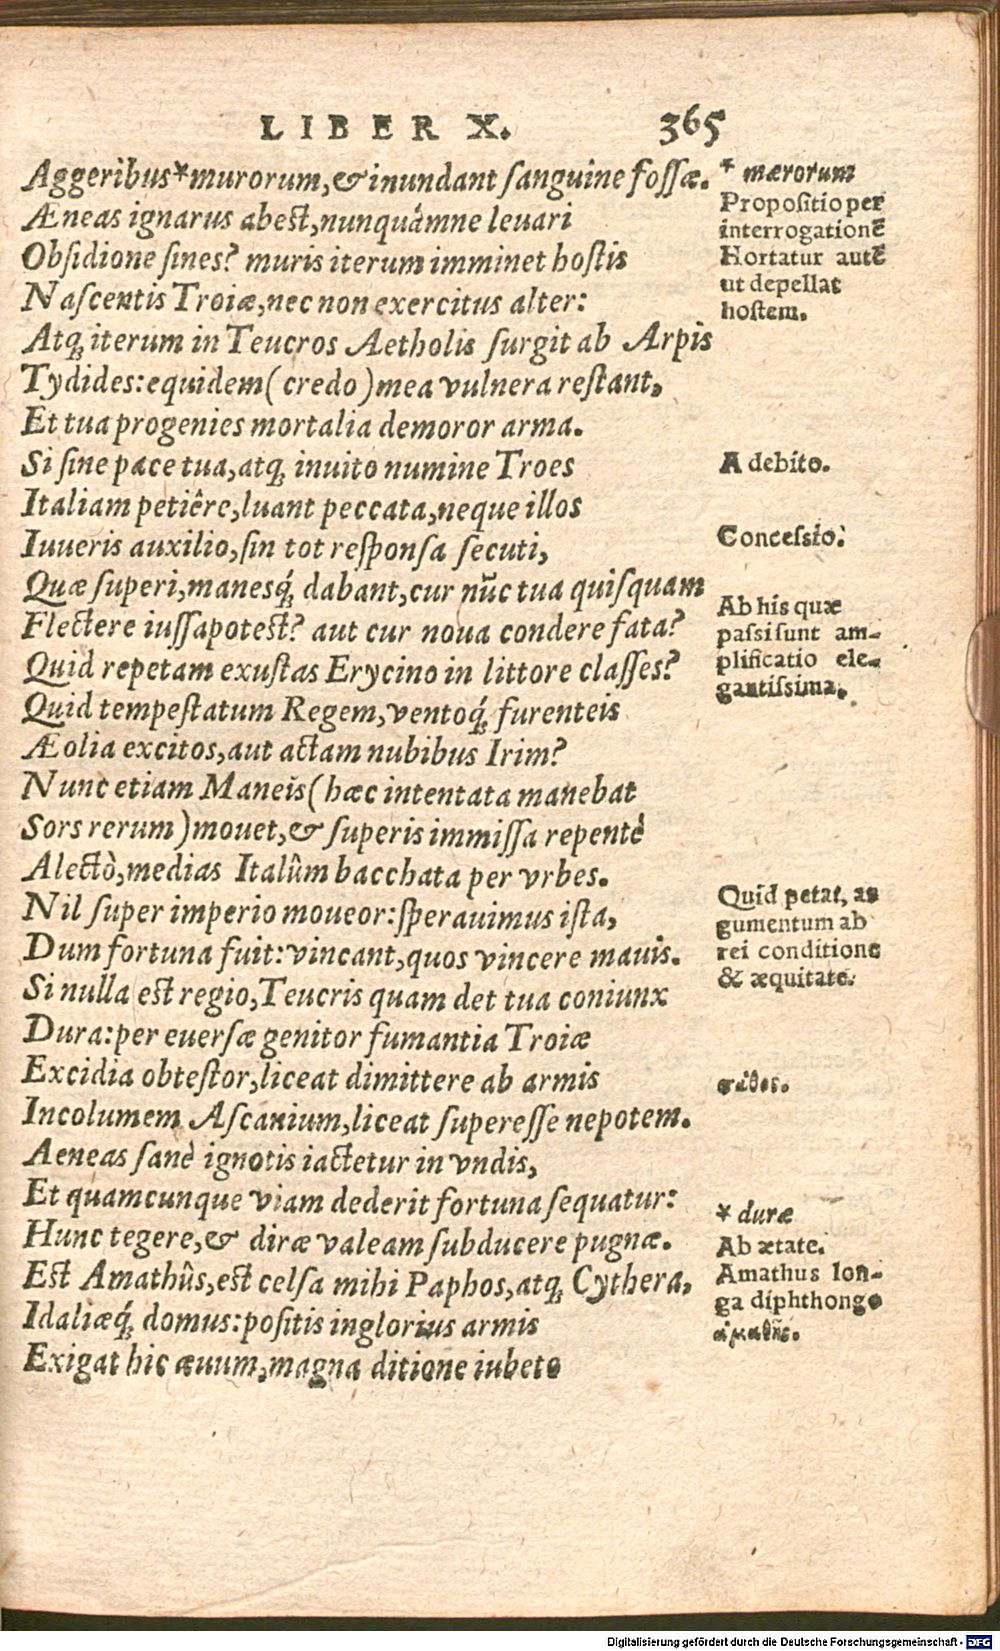 LIBER X. 365
Aggeribus*murorum,& inundant ſanguine foſſæ.
Æneas ignarus abeſt,nunquàmne leuari
Obſidione ſines? muris iterum imminet hoſtis
Naſcentis Troiæ,nec non exercitus alter:
Atq; iterum in Teucros Aetholis ſurgit ab Arpis
Tydides:equidem(credo)mea vulnera reſtant,
Et tua progenies mortalia demoror arma.
Si ſine pace tua,atq; inuito numine Troes
Italiam petiêre,luant peccata,neque illos
Iuueris auxilio,ſin tot reſponſa ſecuti,
Quæ ſuperi,manesq́; dabant,cur nũc tua quiſquam
Flectere iuſſapoteſt? aut cur noua condere fata?
Quid repetam exuſtas Erycino in littore claſſes?
Quid tempeſtatum Regem,ventoq́; furenteis
Æolia excitos,aut actam nubibus Irim?
Nunc etiam Maneis(hæc intentata manebat
Sors rerum)mouet,& ſuperis immiſſa repentè
Alectò,medias Italûm bacchata per vrbes.
Nil ſuper imperio moueor:ſperauimus iſta,
Dum fortuna fuit:vincant,quos vincere mauis.
Si nulla eſt regio,Teucris quam det tua coniunx
Dura:per euerſæ genitor fumantia Troiæ
Excidia obteſtor,liceat dimittere ab armis
Incolumem Aſcanium,liceat ſupereſſe nepotem.
Aeneas ſanè ignotis iactetur in vndis,
Et quamcunque viam dederit fortuna ſequatur:
Hunc tegere,& diræ valeam ſubducere pugnæ.
Eſt Amathûs,eſt celſa mihi Paphos,atq; Cythera,
Idaliæq́; domus:poſitis inglorius armis
Exigat hic æuum,magna ditione iubeto
* mærorum
Propoſitio per
interrogationẽ
Hortatur autẽ
ut depellat
hoſtem.
A debito.
Conceſsio:
Ab his quæ
paſsi ſunt am-
plificatio ele-
gantiſsima.
Quid petat, ar
gumentum ab
rei conditione
& æquitate.
πάθος.
* duræ
Ab ætate.
Amathus lon-
ga diphthongo
ἀμαθῦς.
Digitalisierung gefördert durch die Deutsche Forschungsgemeinschaft - DFG